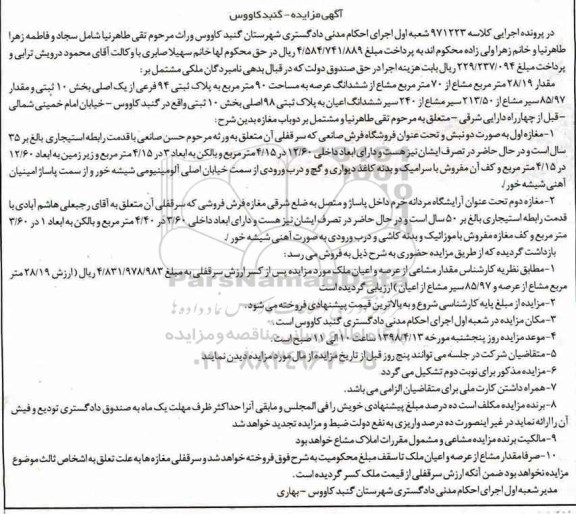 آگهی مزایده - گنبدکاووس
در پرونده اجرایی کلاسه ۹۷۱۲۲۳ شعبه اول اجرای احکام مدنی دادگستری شهرستان گنبد کاووس وراث مرحوم تقی طاهرنیا شامل سجاد و فاطمه زهرا
طاهرنیا و خانم زهرا ولی زاده محکوم اند به پرداخت مبلغ ۴/۵۸۴/۷۴۱/۸۸۹ ریال در حق محکوم لها خانم سهیلا صابری با وکالت آقای محمود درویش ترابی و
پرداخت مبلغ ۲۲۹/۲۳۷/۰۹۴ ریال بابت هزینه اجرا در حق صندوق دولت که در قبال بدهی نامبردگان ملکی مشتمل بر:
مقدار ۲۸/۱۹ متر مربع مشاع از ۷۰ متر مربع مشاع از ششدانگ عرصه به مساحت ۹۰ متر مربع به پلاک ثبتی ۹۴ فرعی از یک اصلی بخش ۱۰ ثبتی و مقدار
۸۵/۹۷ سیر مشاع از ۲۱۳/۵۰ سیر مشاع از ۲۴۰ سیر ششدانگ اعیان به پلاک ثبتی ۹۸ اصلی بخش ۱۰ ثبتی واقع در گنبد کاووس - خیابان امام خمینی شمالی
- قبل از چهارراه دارایی شرقی - متعلق به مرحوم تقی طاهرنیا و مشتمل بر دو باب مغازه بدین شرح:
۱- مغازه اول به صورت دو نبش و تحت عنوان فروشگاه فرش صانعی که سرقفلی آن متعلق به ورثه مرحوم حسن صانعی با قدمت رابطه استیجاری بالغ بر ۳۵
سال است و در حال حاضر در تصرف ایشان نیز هست و دارای ابعاد داخلی ۱۲/۶۰ در ۴/۱۵ متر مربع و بالکن به ابعاد ۳ در ۴/۱۵ متر مربع و زیرزمین به ابعاد ۱۲/۶۰
در ۴/۱۵ متر مربع و کف آن مفروش با سرامیک و بدنه کاغذ دیواری و گچ و درب ورودی از سمت خیابان اصلی آلومینیومی شیشه خور و از سمت پاساژ امینیان
آهنی شیشه خور/.
۲- مغازه دوم تحت عنوان آرایشگاه مردانه خرم داخل پاساژ و متصل به ضلع شرقی مغازه فرش فروشی که سرقفلی آن متعلق به آقای رجبعلی هاشم آبادی با
قدمت رابطه استیجاری بالغ بر ۵۰ سال است و در حال حاضر در تصرف ایشان نیز هست و دارای ابعاد داخلی ۳/۶۰ در ۴/۴۰ متر مربع و بالکن به ابعاد ۱ در ۳/۶۰
متر مربع و کف مغازه مفروش با موزائیک و بدنه کاشی و درب ورودی به صورت آهنی شیشه خور /
بازداشت گردیده که از طریق مزایده حضوری به شرح ذیل به فروش می رسد:
۱- مطابق نظریه کارشناس مقدار مشاعی از عرصه و اعیان ملک مورد مزایده پس از کسر ارزش سرقفلی به مبلغ ۴/۸۳۱/۹۷۸/۹۸۳ ریال (ارزش ۲۸/۱۹ متر
مربع مشاع از عرصه و ۸۵/۹۷ سیر مشاع از اعیان) ارزیابی گردیده است
۲- مزایده از مبلغ پایه کارشناسی شروع و به بالاترین قیمت پیشنهادی فروخته می شود.
۳- مکان مزایده در شعبه اول اجرای احکام مدنی دادگستری گنبد کاووس است.
۴- موعد مزایده روز پنجشنبه مورخه ۱۳۹۸/۴/۱۳ ساعت ۱۰ الی ۱۱ صبح است.
۵- متقاضیان شرکت در جلسه می توانند پنج روز قبل از تاریخ مزایده از مال مورد مزایده دیدن نمایند
۶- مزایده مذکور برای نوبت دوم تشکیل می گردد
۷- همراه داشتن کارت ملی برای متقاضیان الزامی می باشد.
۸- برنده مزایده مکلف است ده درصد مبلغ پیشنهادی خویش را فی المجلس و مابقی آنرا حداکثر ظرف مهلت یک ماه به صندوق دادگستری تودیع و فیش
آن را ارائه نماید در غیر اینصورت ده درصد واریزی به نفع دولت ضبط و مزایده تجدید خواهد شد
۹- مالکیت برنده مزایده مشاعی و مشمول مقررات املاک مشاع خواهد بود
۱۰- صرفا مقدار مشاع از عرصه و اعیان ملک تا سقف مبلغ محکومیت به شرح فوق فروخته خواهد شد و سرقفلی مغازه ها به علت تعلق به اشخاص ثالث موضوع
مزایده نخواهد بود ضمن آنکه ارزش سرقفلی از قیمت ملک کسر گردیده است.
مدیر شعبه اول اجرای احکام مدنی دادگستری شهرستان گنبد کاووس - بهاری